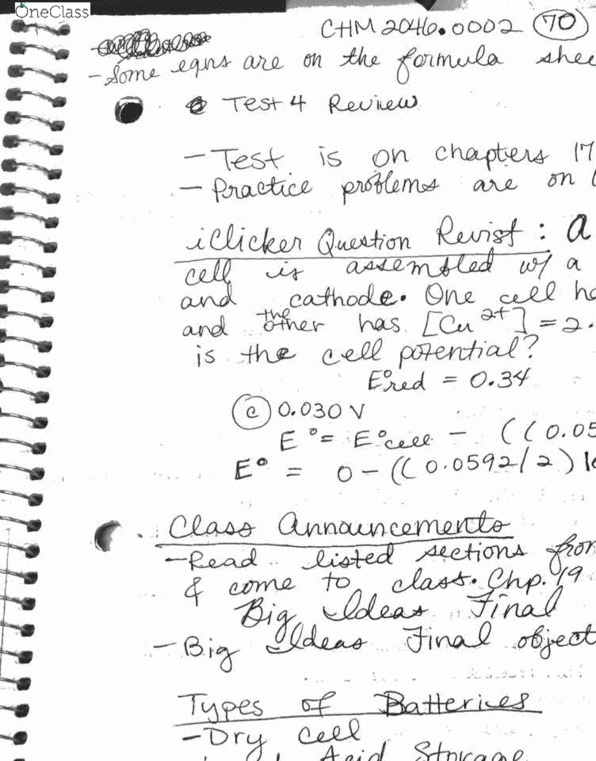 OneClass
CHM 2046.0002 70
- Some eqns are on the formula shee
Test 4 Review
- Test is on chapters 17
- Practice problems are on
iClicker Question Revist : a
cell is assembled w/ a
and cathode. One cell ha
and the other has [Cu2+] = 2.
is the cell potential?
E°red = 0.34
(c) 0.030 V
E° = E°cell - ((0.05
E° = 0 - ((0.0592/2) lo
Class Announcements
- Read listed sections from
& come to class. Chp. 19
Big Ideas Final
- Big Ideas Final object
Types of Batteries
- Dry cell
Acid Storage